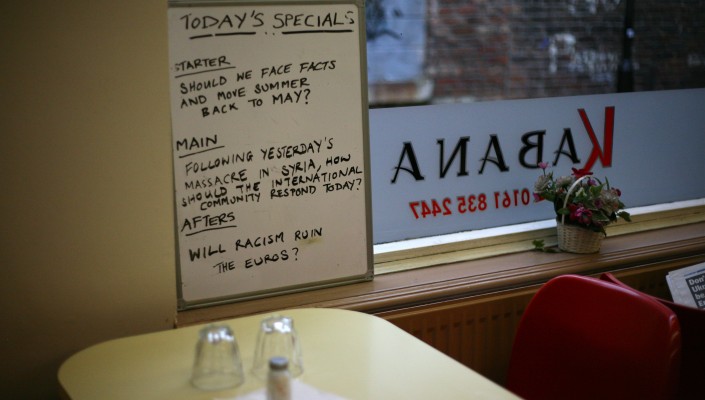 TODAY'S SPECIALS
STARTER
SHOULD WE FACE FACTS
AND MOVE SUMMER
BACK TO MAY?
MAIN
FOLLOWING YESTERDAY'S
MASSACRE IN SYRIA, HOW
SHOULD THE INTERNATIONAL
COMMUNITY RESPOND TODAY?
AFTERS
WILL RACISM RUIN
THE EUROS?
KABANA
0161 835 2447
Don't